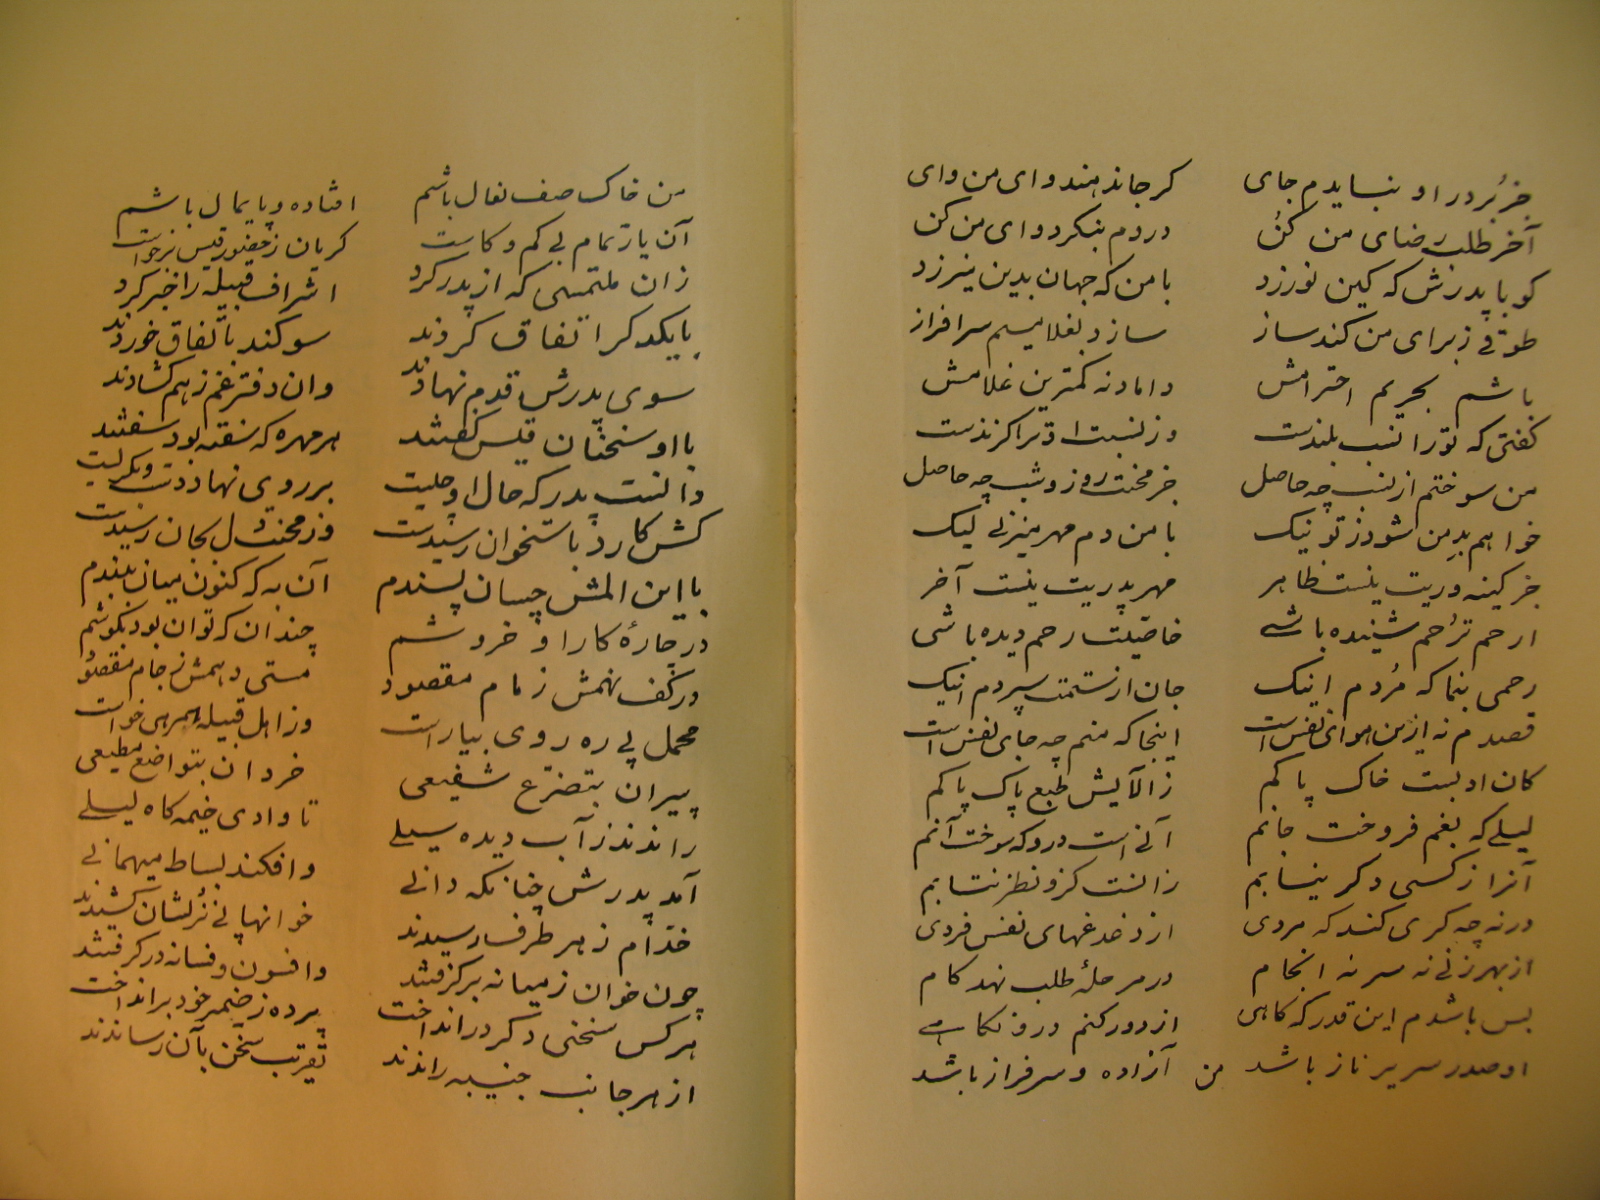 جز بر در او نبایدم جای گر جان ندهند وای من وای
آخر طلب رضای من کن دردم بنگر دوای من کن
گو با پدرش که کین نورزد با من که جهان بدین نیرزد
طوقی ز برای من کند ساز سازد بغلامیم سرافراز
باشم بحریم احترامش داماد نه کمترین غلامش
گفتی که تو را نسب بلندست وز نسبت او ترا گزندست
من سوختم از نسب چه حاصل جز محنت روز و شب چه حاصل
خواهم بد من شود ز تو نیک با من دم مهر میزنی لیک
جز کینه وریت نیست ظاهر مهر پدریت نیست آخر
ار حم ترحم شنیده باشی خاصیت رحم دیده باشی
رحمی بنما که مردم اینک جان از ستمت سپردم اینک
قصدم نه ازین هوای نفس است اینجا که منم چه جای نفس است
کان او بست خاک پاکم ز آلایش طبع پاک پاکم
لیلی که بغم فروخت جانم آنی است درو که سوخت آنم
آنرا ز کسی دگر نیابم زانست کزو نظر نتابم
ورنه چه کری کند که مردی از دغدغهای نفس فردی
از بهر زنی نه سر نه انجام در مرحلهٔ طلب نهد کام
بس باشدم این قدر که گاهی از دور کنم درو نگاهی
او صدر سریر ناز باشد من آزاده و سرفراز باشد
من خاک صف نعال باشم افتاده و پایمال باشم
آن یار تمام بی کم و کاست گریان ز حضور قیس برخواست
زان ملتمسی که از پدر کرد اشراف قبیله را خبر کرد
با یکدگر اتفاق کردند سوگند باتفاق خوردند
سوی پدرش قدم نهادند وان دفتر غم ز هم گشادند
با او سخنان قیس گفتند هر مهره که سفته بود سفتند
دانست پدر که حال او چیست بر روی نهاد دست و بگریست
کش کارد باستخوان رسیدست وز محنت دل بجان رسیدست
با این المش چسان پسندم آن به که کنون میان ببندم
در چارهٔ کار او خروشم چندان که توان بود بکوشم
در کف نهمش زمام مقصود مستی دهمش ز جام مقصود
محمل پی ره روی بیاراست وز اهل قبیله همرهی خواست
پیران بتضرع شفیعی خردان بتواضع مطیعی
راندند ز آب دیده سیلی تا وادی خیمه گاه لیلی
آمد پدرش چنانکه دانی وافکند بساط میهمانی
خدام ز هر طرف رسیدند خوانها پی نزلشان کشیدند
چون خوان ز میانه برگرفتند وافسون و فسانه در گرفتند
هر کس سخنی دگر درانداخت پرده ز ضمیر خود برانداخت
از هر جانب جنیبه راندند تقریب سخن بآن رساندند